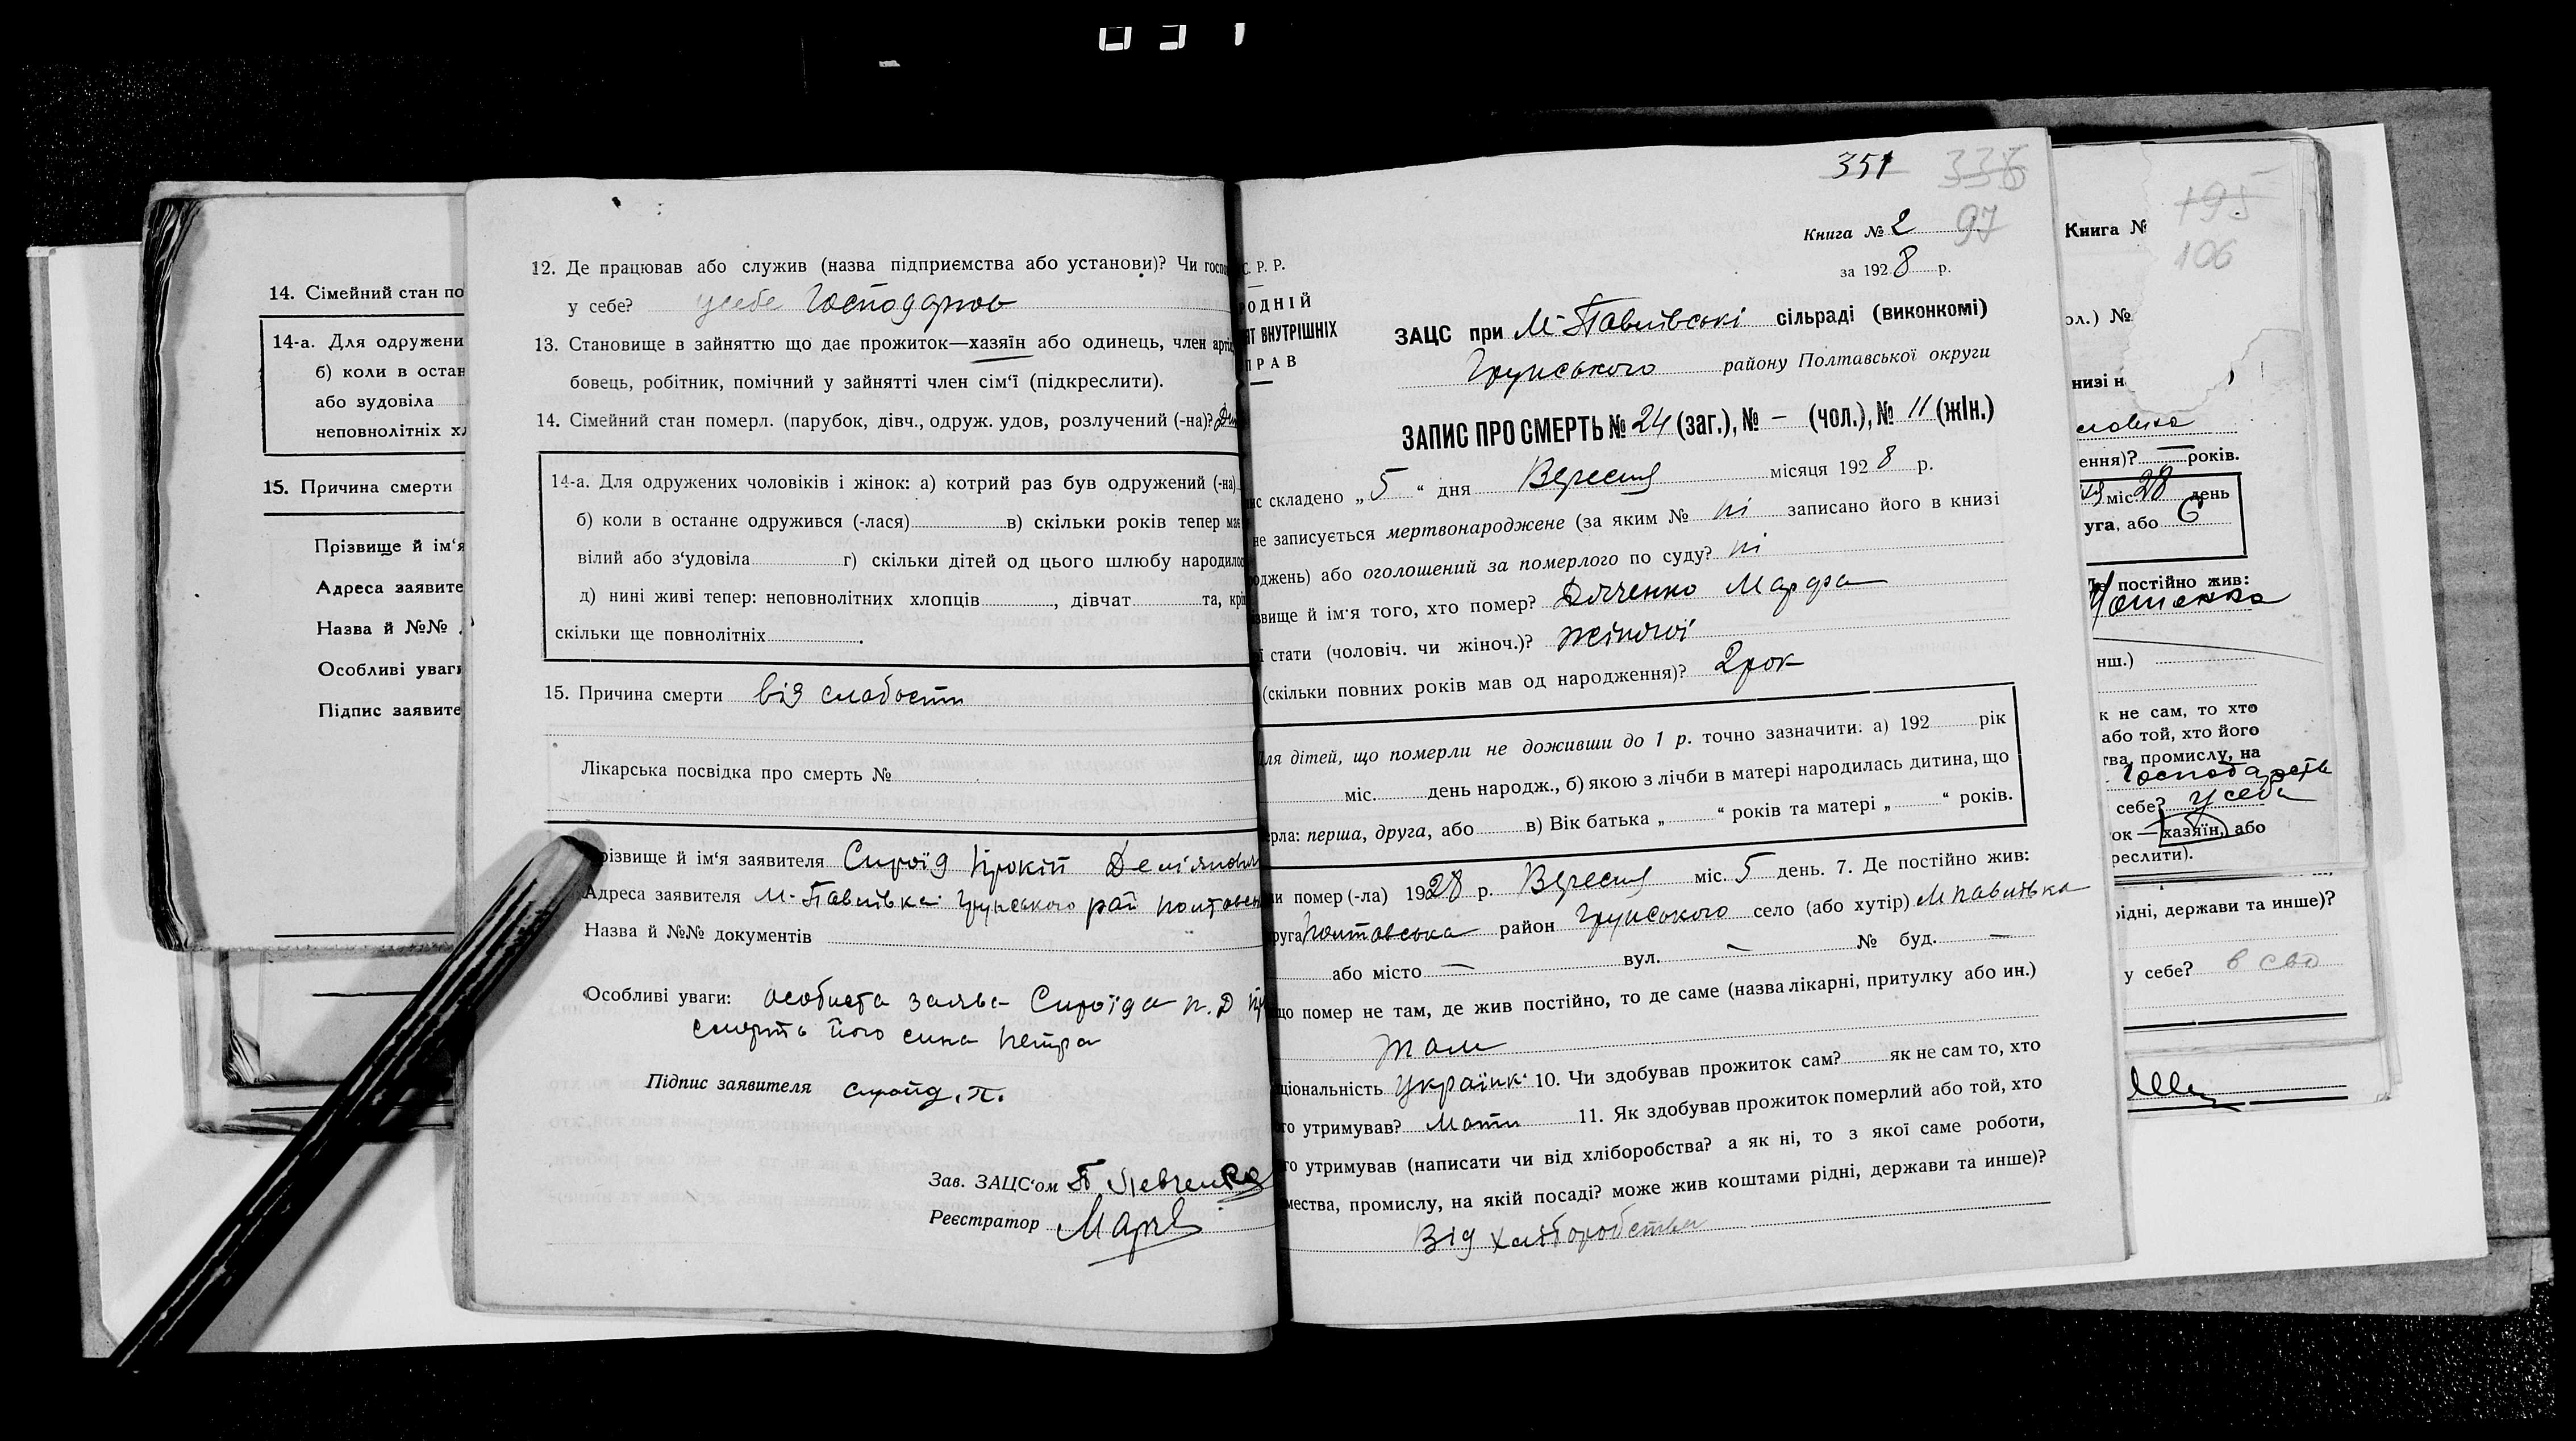 14. Сімейний стан по
14-а. Для одружени
б) коли в остан
або зудовіла
неповнолітніх х
15. Причина смерти
Прізвище й ім'я
Адреса заявите
Назва й №№
Особливі уваги
Підпис заявите
12. Де працював або служив (назва підприємства або установи)? Чи госпо
у себе? усебе Господарюв
13. Становище в зайняттю що дає прожиток—хазяїн або одинець, член арті
бовець, робітник, помічний у зайнятті член сім'ї (підкреслити).
14. Сімейний стан померл. (парубок, дівч., одруж. удов, розлучений (-на)?
14-а. Для одружених чоловіків і жінок: а) котрий раз був одружений (-на)
б) коли в останнє одружився (-лася) в) скільки років тепер має
вілий або з'удовіла г) скільки дітей од цього шлюбу народило
д) нині живі тепер: неповнолітних хлопців , дівчат та, крі
скільки ще повнолітніх .
15. Причина смерти від слабости
Лікарська посвідка про смерть №
різвище й ім'я заявителя Сироїд Прокіп Демʼянович
Адреса заявителя М-Павлівка Грунського рай Полтавськ
Назва й №№ документів
Особливі уваги: особиста заява Сироїда П. Д
смерть його сина Петра
Підпис заявителя Сироїд. П.
Зав. ЗАЦС'ом
Реєстратор
351 336
Книга № 2 97
за 1928 р.
С. Р. Р.
РОДНІЙ
ЯТ ВНУТРІШНІХ
ПРАВ
ЗАЦС при М-Павлівські сільраді (виконкомі)
Грунського району Полтавської округи
ЗАПИС ПРО СМЕРТЬ № 24 (заг.), № – (чол.), № 11 (жін.)
ис складено „5“ дня Вересня місяця 1928 р.
не записується мертвонароджене (за яким № ні записано його в книзі
оджень) або оголошений за померлого по суду? ні
звище й ім'я того, хто помер? Дяченко Марфа
ї стати (чоловіч. чи жіноч.)? жіночої
(скільки повних років мав од народження)? 2 рок
Для дітей, що померли не доживши до 1 р. точно зазначити: а) 192 рік
міс. день народж., б) якою з лічби в матері народилась дитина, що
ерла: перша, друга, або в) Вік батька „ “ років та матері „ “ років.
и помер (-ла) 1928 р. Вересня міс. 5 день. 7. Де постійно жив:
руга Полтавська район Грунського село (або хутір) М Павлівка
або місто – вул. – № буд. –
що помер не там, де жив постійно, то де саме (назва лікарні, притулку або ин.)
там
ціональність українк. 10. Чи здобував прожиток сам? як не сам то, хто
го утримував? Мати 11. Як здобував прожиток померлий або той, хто
го утримував (написати чи від хліборобства? а як ні, то з якої саме роботи,
мества, промислу, на якій посаді? може жив коштами рідні, держави та инше)?
Від хліборобства
195
Книга №
106
ол.) №
низі н
ення)? – років.
міс. 28 день
уга, або 6
Де постійно жив:
нш.)
к не сам, то хто
або той, хто його
тва, промислу, на
себе? у себе
ок — хазяїн, або
реслити).
рідні, держави та инше)?
у себе?